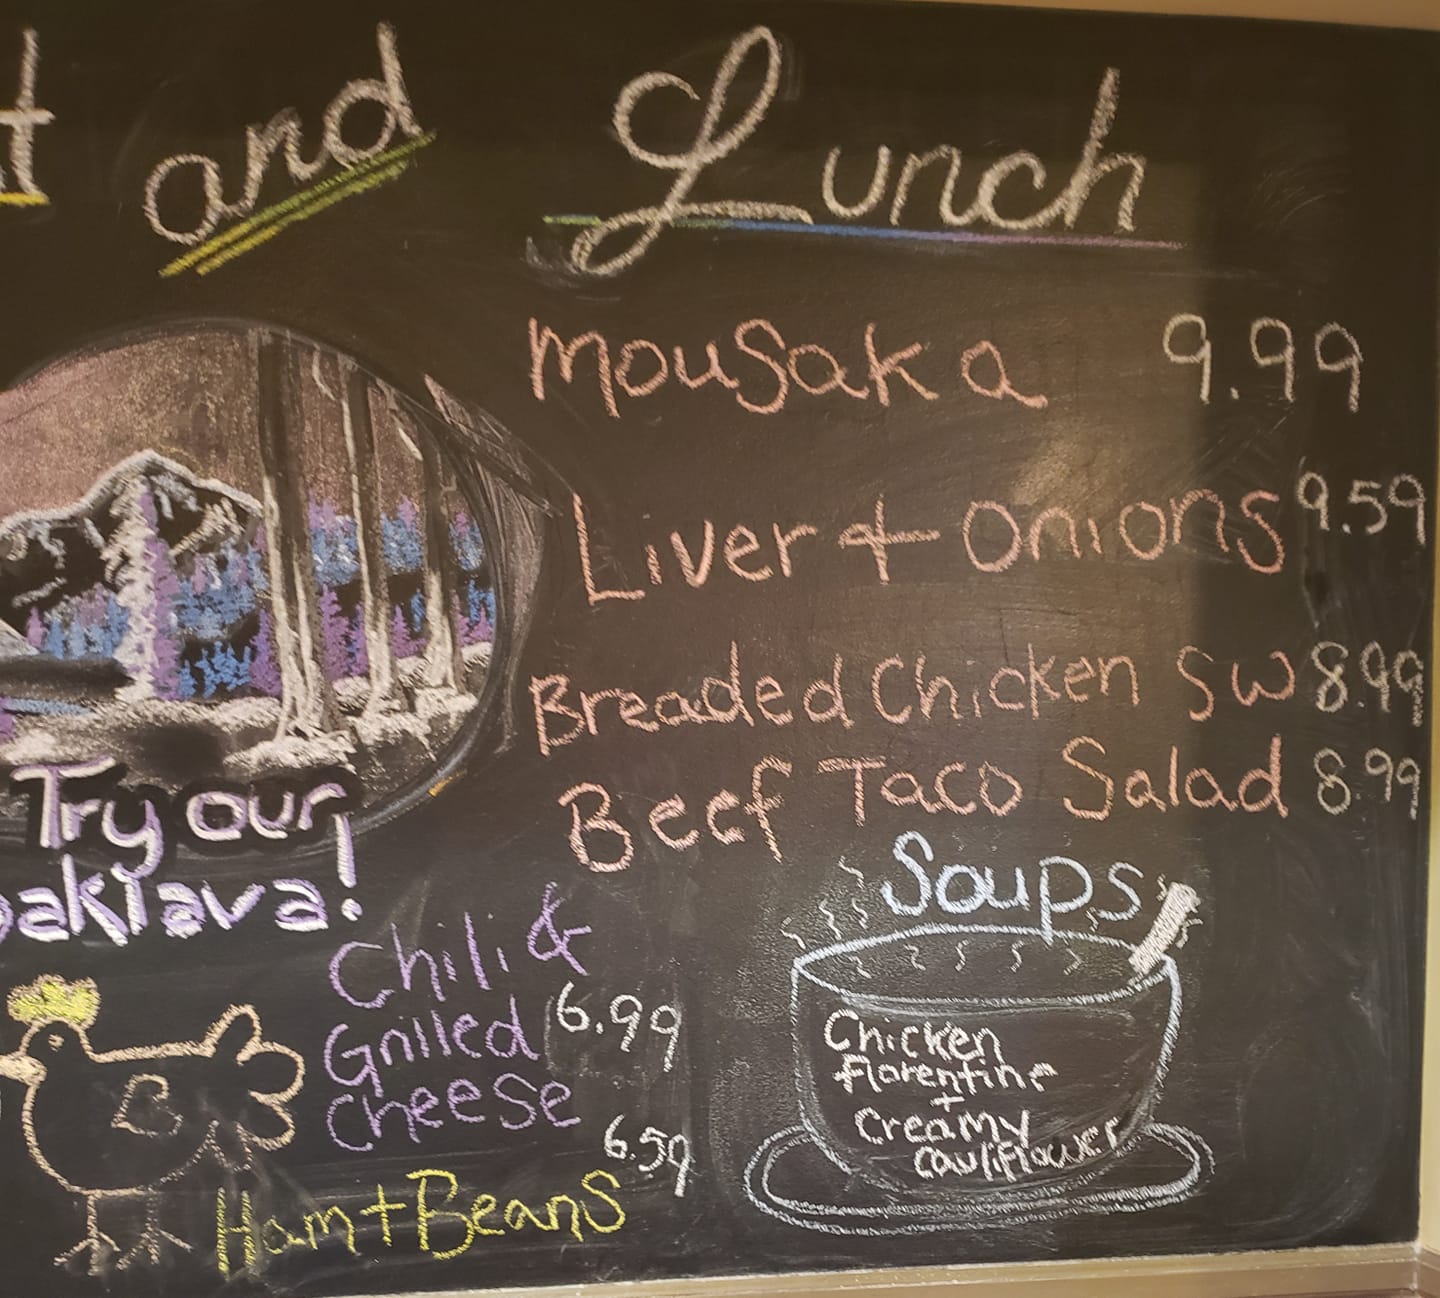 and Lunch
Mousaka 9.99
Liver & Onions 9.59
Breaded Chicken SW 8.99
Beef Taco Salad 8.99
Try our
baklava!
Chili &
Grilled 6.99
Cheese
6.59
Ham + Beans
Soups
Chicken
florentine
+
Creamy
Cauliflower